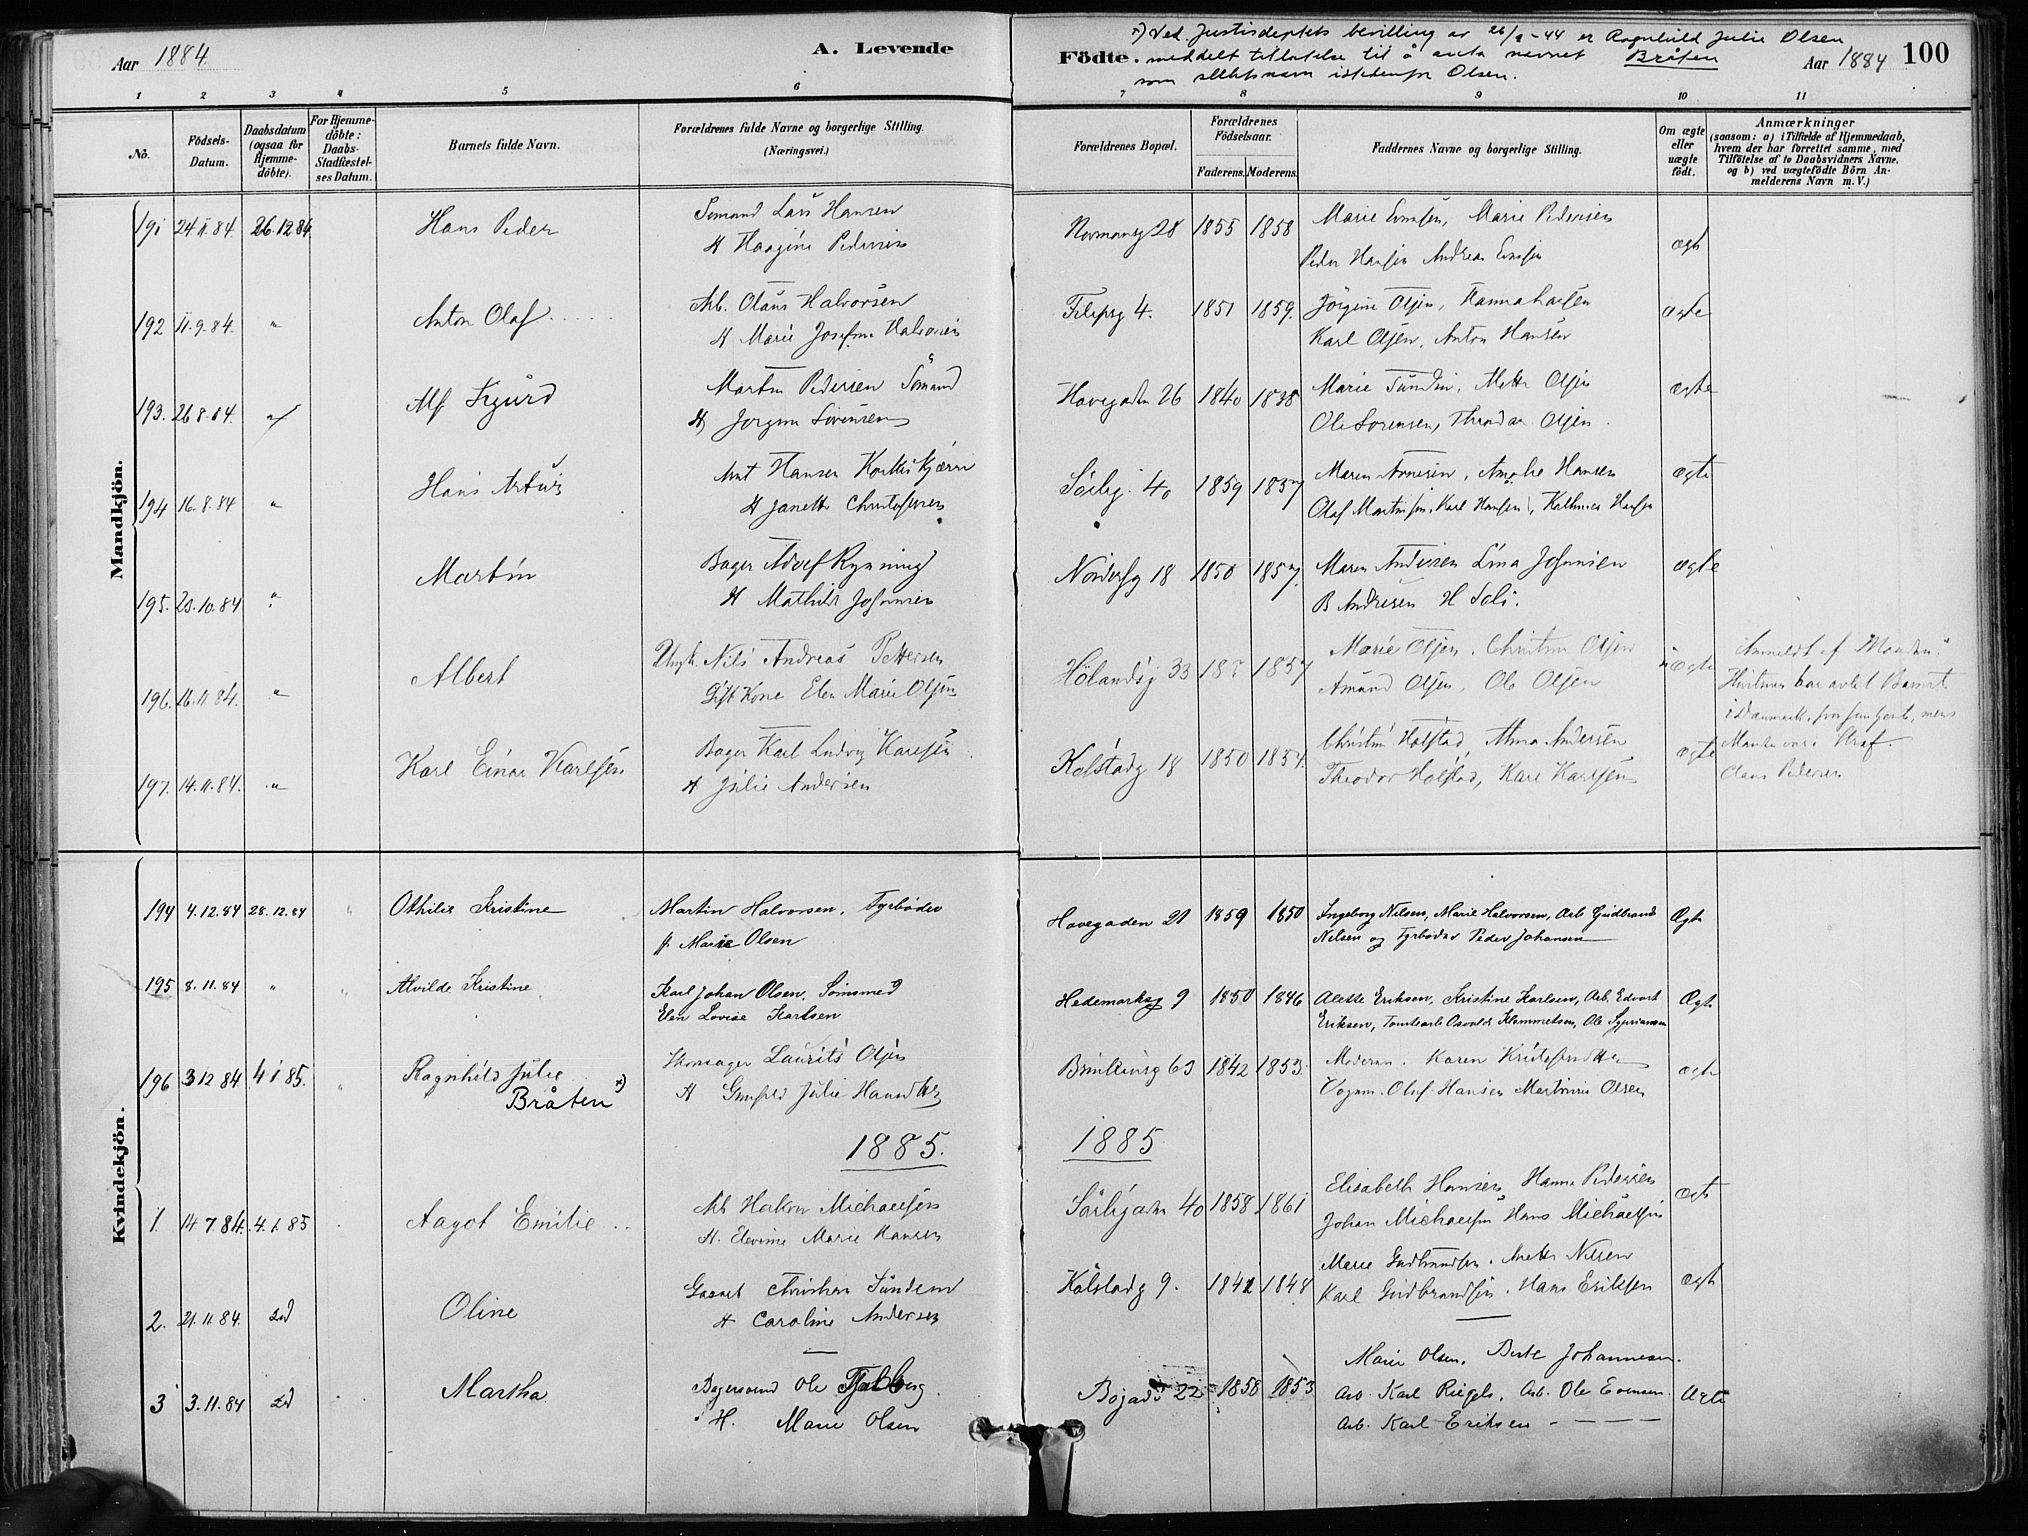 Aar 1884.
A. Levende
Födte.
*) Ved Justisdeptets bevilling av 26/9-44 er Ragnhild Julie Olsen
meddelt tillatelse til å anta navnet Bråten
som slektsnavn istedenfor Olsen.
Aar 1884
100
1 2 3 4 5 6 7 8 9 10 11
No.
Födsels-Datum.
Daabsdatum (ogsaa for Hjemme-döbte).
For Hjemme-döbte: Daabs-Stadfæstel-ses Datum.
Barnets fulde Navn.
Forældrenes fulde Navne og borgerlige Stilling.
(Næringsvei.)
Forældrenes Bopæl.
Forældrenes Födselsaar.
Faderens. Moderens.
Faddernes Navne og borgerlige Stilling.
Om ægte eller uægte födt.
Anmærkninger
(saasom: a) i Tilfælde af Hjemmedaab, hvem der har forrettet samme, med Tilföielse af to Daabsvidners Navne, og b) ved uægtefödte Börn An-melderens Navn m. V.)
Mandkjön.
191 24.11.84. 26.12.84 Hans Peder Sømand Lars Hansen 1855 1858 Marie Evensen, Marie Pedersen
H Haagine Pedersen Peder Hansen Andreas Evensen ægte
192 11.9.84. " Anton Olaf Arb. Olaus Halvorsen Filipsg 4. 1851 1859. Jörgine Olsen, Hanna Hansen ægte
H Marie Josefine Halvorsen Karl Olsen, Anton Hansen
193. 26.8.84. " Alf Sigurd Martin Pedersen Sömand Havegaden 26 1840 1838 Marie Sundin, Mette Olsen ægte
H Jorgine Sorensen Ole Sorensen, Theodor Olsen.
194 16.8.84 " Hans Artur Hansen Sörlig. 40 1859 1857 Maren Arnesen, Amalie Hansen ægte
H Janette Christofersen Olaf Martinsen, Karl Hansen, Hansen
195. 20.10.84 " Martin Bager Adolf Rynning Nordbyg 18 1850 1857. Maren Andersen Lina Johansen ægte
H Mathilde Johansen B Andresen H Soli.
196. 16.11.84. " Albert Ungk. Nils Andreas Pettersen Hölandsg 33 1857 Marie Olsen. Christine Olsen uægte Anmeldt af Manden.
Gift Kone Elen Marie Olsen Amund Olsen, Ole Olsen Hustruen har avlet Barnet
i Danmark, mens
Manden var i Straf.
Claus Pedersen
197. 14.11.84. " Karl Einar Karlsen Bager Karl Ludvig Karlsen Kolstadg 18 1850 1854. Christine Holstad, Anna Andersen ægte
H Julie Andersen Theodor Holstad, Karl Karlsen
Kvindekjön.
194 4.12.84 28.12.84 " Othilie Kristine Martin Halvorsen. Fyrböder Havegaden 21 1859 1850 Ingeborg Nilsen, Marie Halvorsen, Arb Gudbrand Ægte
H. Marie Olsen Nilsen og Fyrböder Peder Johansen
195 8.11.84 " " Alvilde Kristine Karl Johan Olsen. Sömsmed Hedemarksg 9 1850 1846 Alette Eriksen, Kristine Karlsen, Arb. Edvart Ægte
Elen Lovise Karlsen Eriksen, Tomtearb Osvald Klemmetsen, Ole Syprians
196 3.12.84 4.1.85. " Ragnhild Julie Skomager Laurits Olsen 63 1842 1853. Moderen. Karen ægte
Bråten *) H Gunhild Julie Hansdtter Vognm. Olaf Hansen Martinius Olsen
1885. 1885
1. 14.7.84. 4.1.85 Aagot Emilie Arb Hakon Michaelsen Sörligaden 40 1858 1861 Elisabeth Hansen, Hanna Pedersen ægte
H. Elevine Marie Hansen Johan Michaelsen Hans Michaelsen
2. 21.11.84. sd Oline Christian Sundem Kolstadg 9. 1842 1848 Marie Gudbrandsen. Anette Nilsen ægte
H Caroline Andersen Karl Gudbrandsen. Hans Eriksen
3 3.11.84 sd Martha Bagersvend Ole Fjeldberg. Bögade 22 1858 1853 Marie Olsen. Berte Johannesen. Ægte
H. Marie Olsen Arb. Karl Riegels, Arb. Ole Evensen
Arb. Karl Eriksen